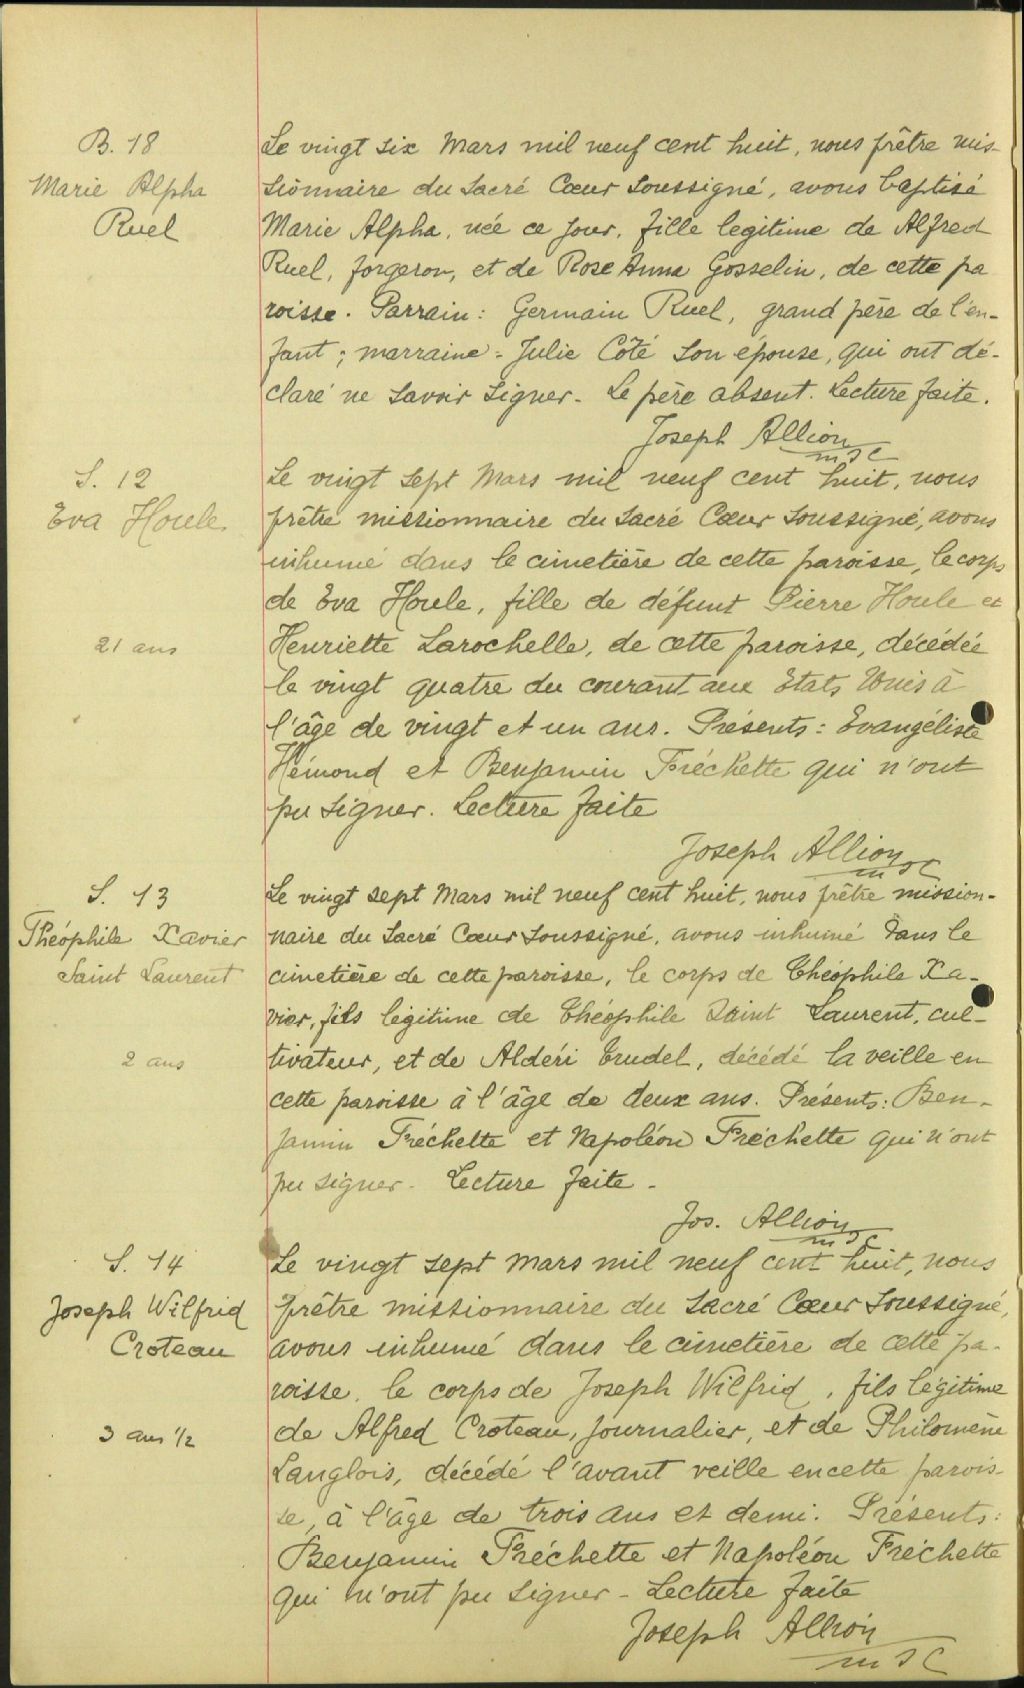 B. 18
Marie Alpha
Ruel
Le vingt six Mars mil neuf cent huit, nous prêtre mis-
sionnaire du Sacré Cœur soussigné, avons baptisé
Marie Alpha, née ce jour, fille legitime de Alfred
Ruel, forgeron, et de Rose Anna Gosselin, de cette pa
roisse. Parrain: Germain Ruel, grand père de l'en-
fant; marraine: Julie Côté son épouse, qui ont dé-
claré ne savoir signer. Le père absent. Lecture faite.
Joseph Allion
m s c
S. 12
Eva Houle
21 ans
Le vingt sept Mars mil neuf cent huit, nous
prêtre missionnaire du Sacré Cœur soussigné, avons
inhumé dans le cimetière de cette paroisse, le corps
de Eva Houle, fille de défunt Pierre Houle et
Henriette Larochelle, de cette paroisse, décédée
le vingt quatre du courant aux Etats Unis à
l'âge de vingt et un ans. Présents: Evangéliste
Hémond et Benjamin Fréchette qui n'ont
pu signer. Lecture faite
Joseph Allion
m s c
S. 13
Théophile Xavier
Saint Laurent
2 ans
Le vingt sept Mars mil neuf cent huit, nous prêtre mission-
naire du Sacré Cœur soussigné, avons inhumé dans le
cimetière de cette paroisse, le corps de Théophile Xa-
vier, fils légitime de Théophile Saint Laurent, cul-
tivateur, et de Aldéri Trudel, décédé la veille en
cette paroisse à l'âge de deux ans. Présents: Ben-
jamin Fréchette et Napoléon Fréchette qui n'ont
pu signer - Lecture faite -
Jos. Allion
m s c
S. 14
Joseph Wilfrid
Croteau
3 ans 1/2
Le vingt sept Mars mil neuf cent huit, nous
prêtre missionnaire du Sacré Cœur soussigné,
avons inhumé dans le cimetière de cette pa-
roisse, le corps de Joseph Wilfrid, fils légitime
de Alfred Croteau, journalier, et de Philomène
Langlois, décédé l'avant veille en cette parois-
se, à l'âge de trois ans et demi. Présents:
Benjamin Fréchette et Napoléon Fréchette
qui n'ont pu signer - Lecture faite
Joseph Allion
m s c